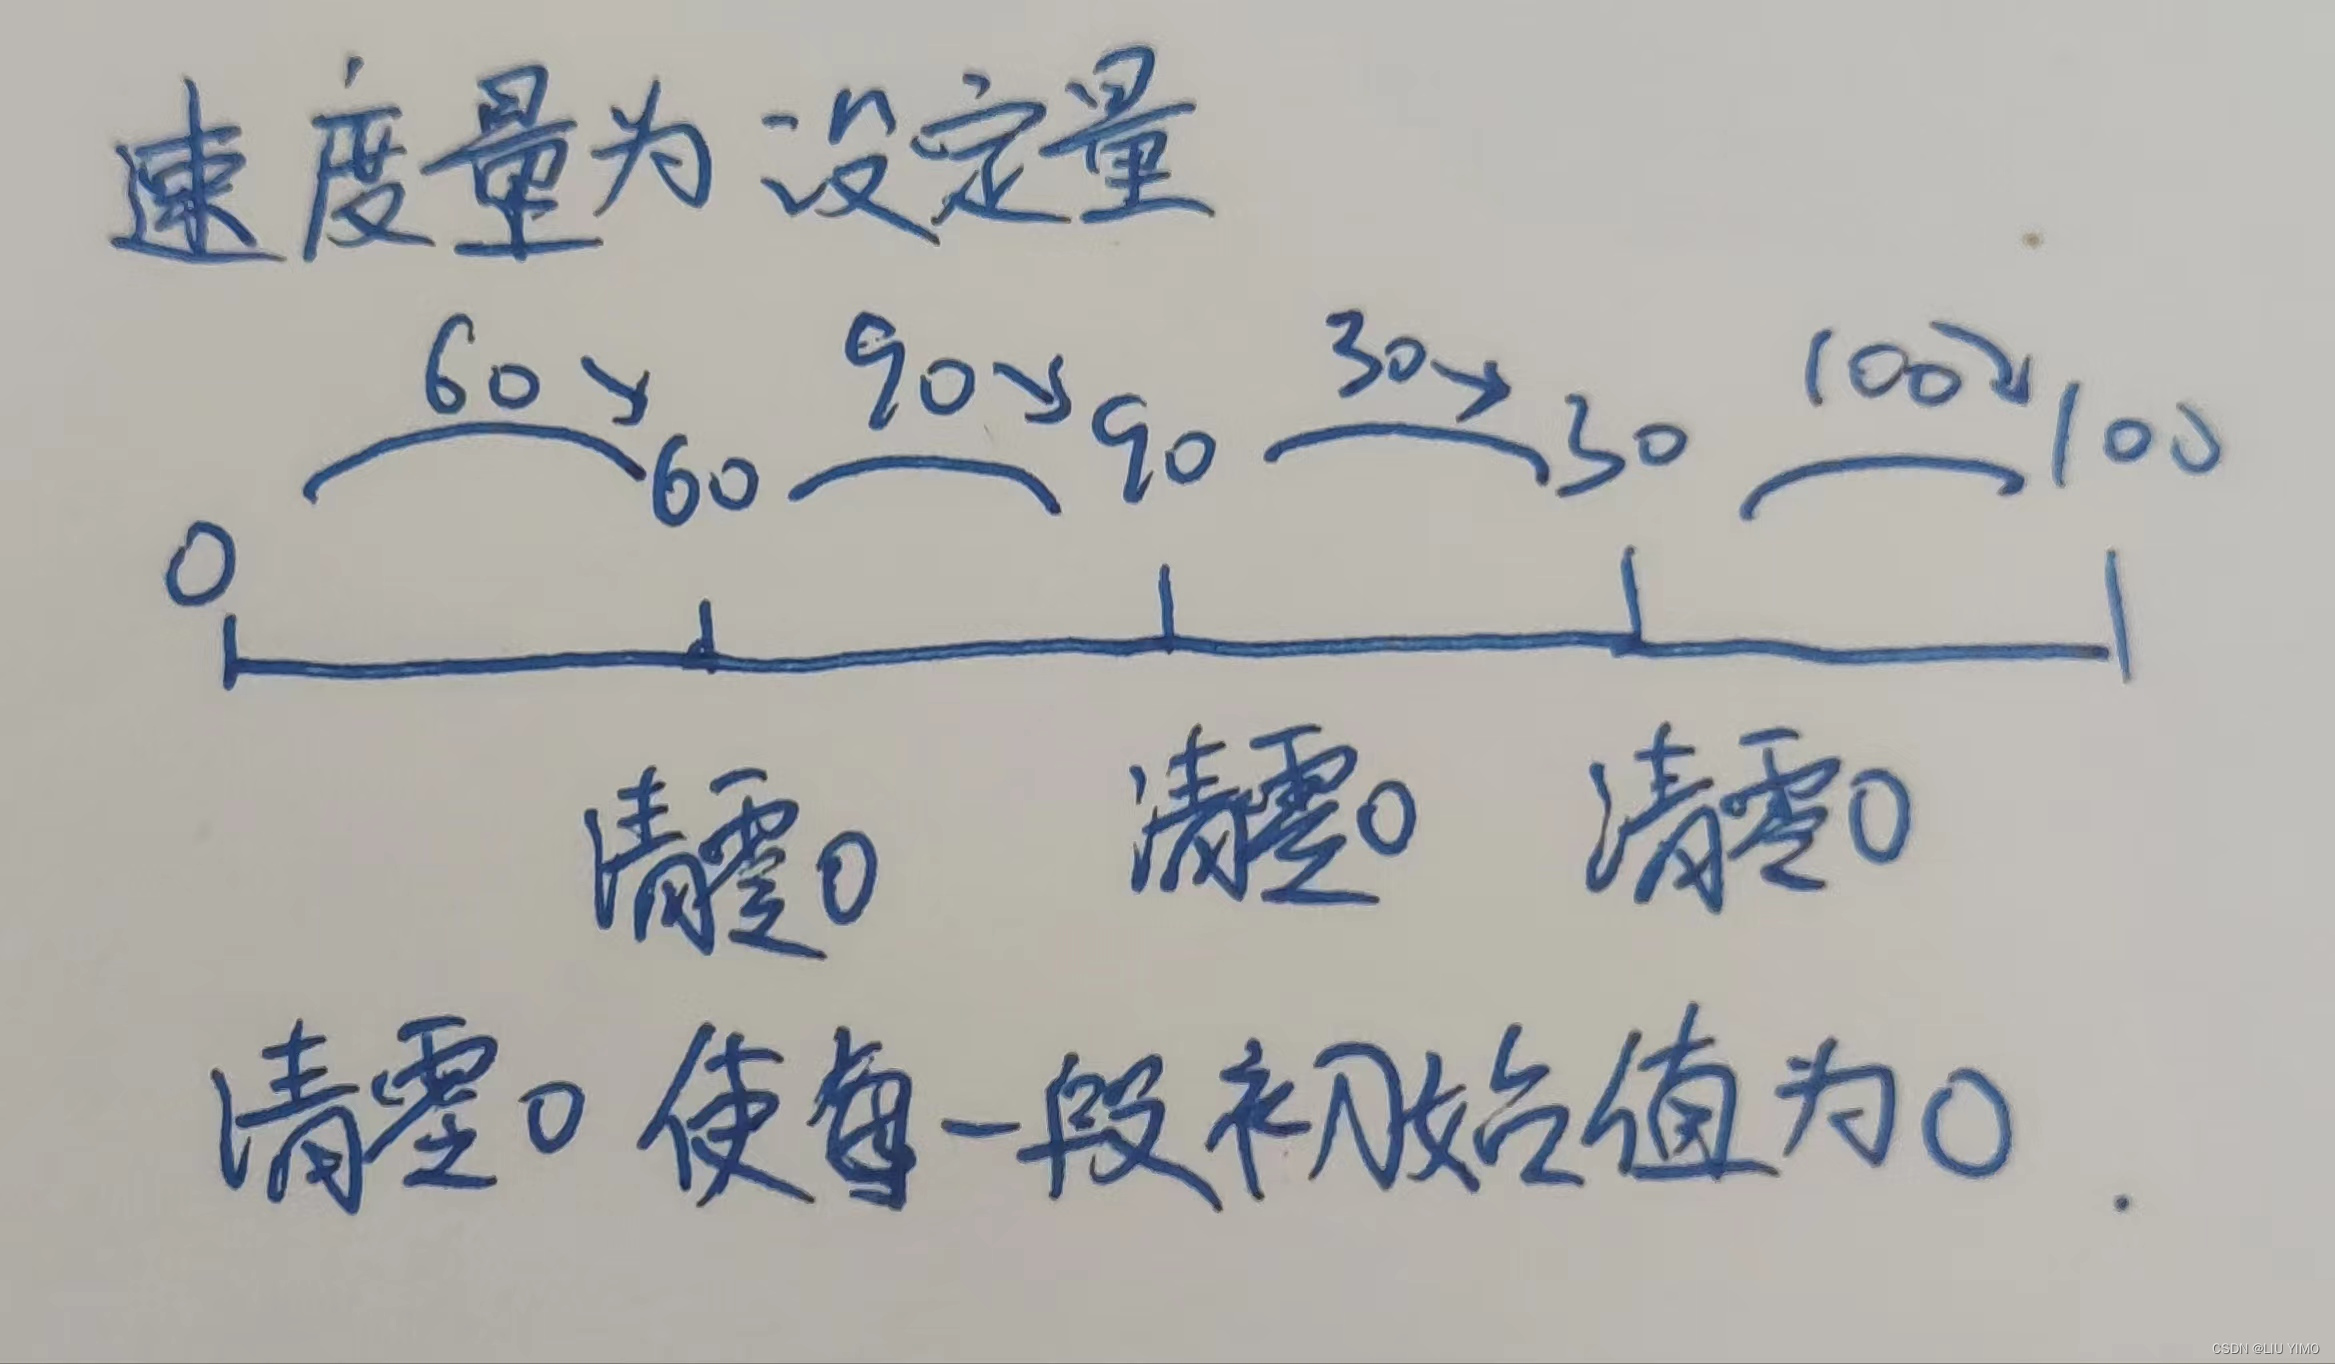 速度量为设定量
60 90 30 100
0 60 90 30 100
清零0 清零0 清零0
清零0 使每一段初始值为0.
CSDN @LIU YIMO